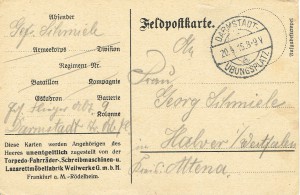 Absender
Gef. Schmiele
Armeekorps Division
Regiments-Nr.
Bataillon Kompagnie
Eskadron Batterie
Kolonne
Darmstadt
Diese Karten werden Angehörigen des
Heeres unentgeltlich zugestellt von der
Torpedo-Fahrräder-, Schreibmaschinen- u.
Lazarettmöbelfabrik Weilwerke G. m. b. H.
Frankfurt a. M.-Rödelheim
Feldpostkarte.
DARMSTADT
ÜBUNGSPLATZ
An
Frau
Georg Schmiele
Halver / Westfalen
Kreis Altena